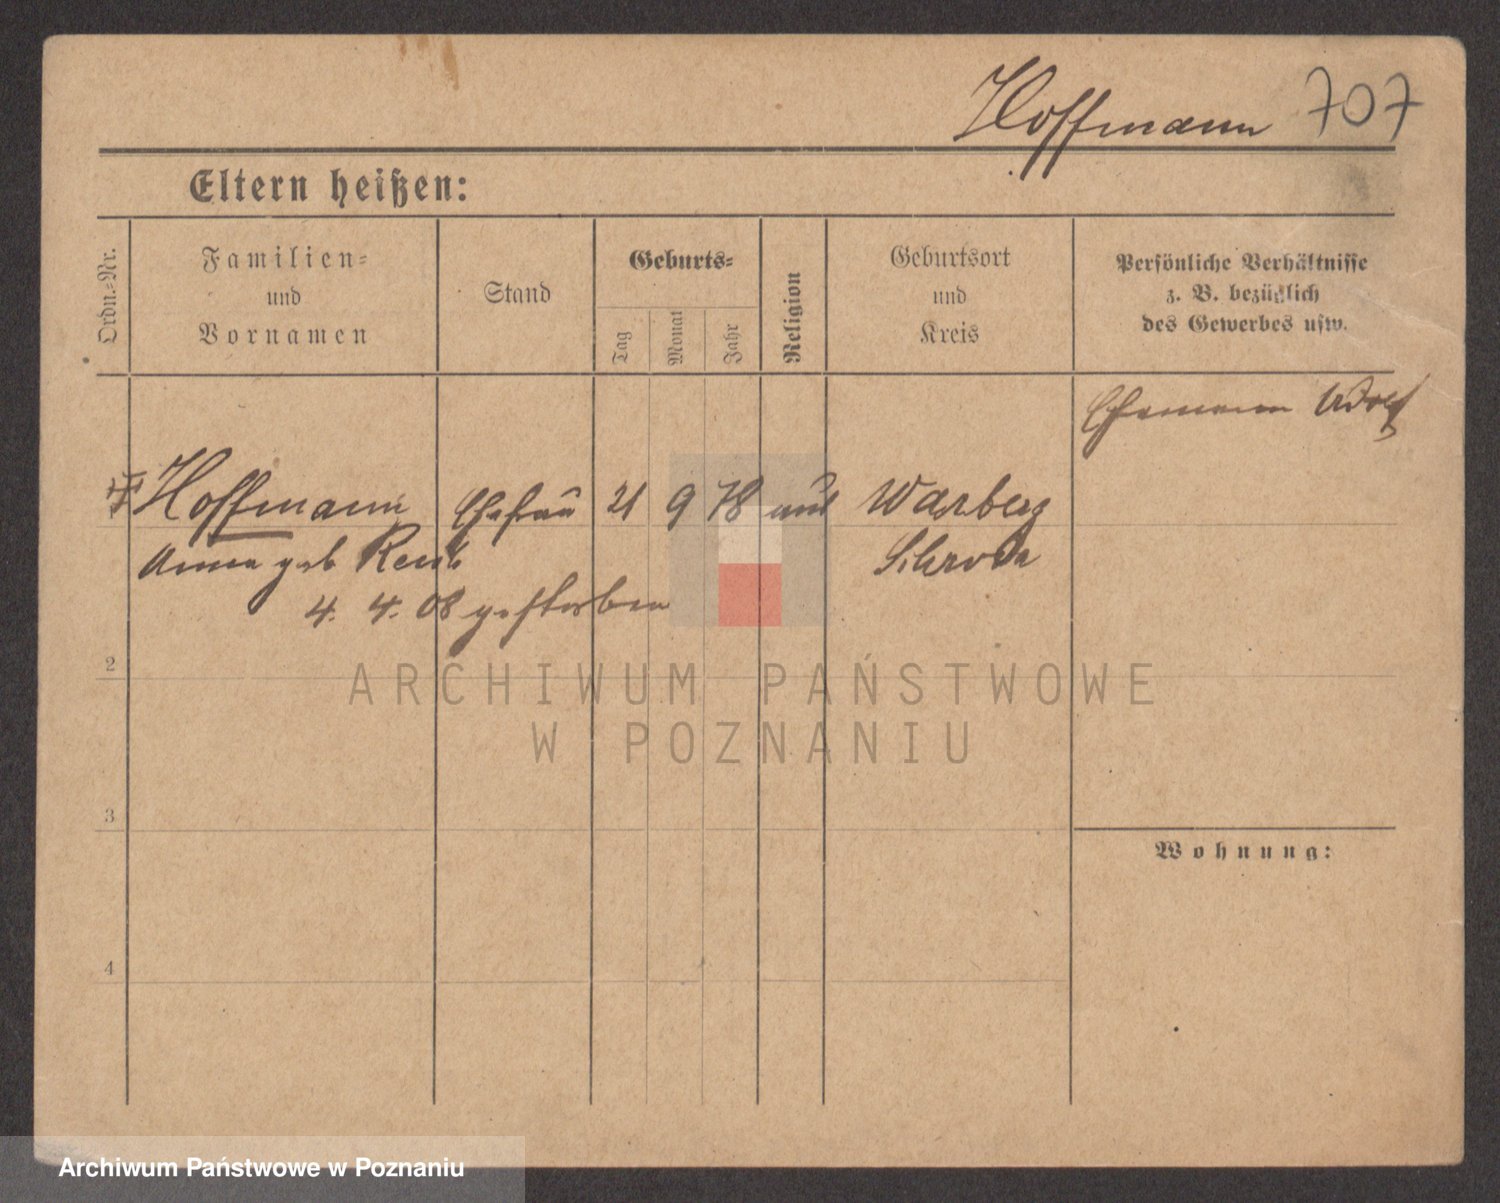 Hoffmann 707
Eltern heißen:
Ordn.-Nr.
Familien-
und
Vornamen
Stand
Geburts-
Tag
Monat
Jahr
Religion
Geburtsort
und
Kreis
Persönliche Verhältnisse
z. B. bezüglich
des Gewerbes usw.
Ehemann Adolf
Hoffmann Ehefrau 21 9 78 Warberg
Anna geb Schroda
4. 4. 08 gestorben
2
3
4
Wohnung:
ARCHIWUM PAŃSTWOWE
W POZNANIU
Archiwum Państwowe w Poznaniu